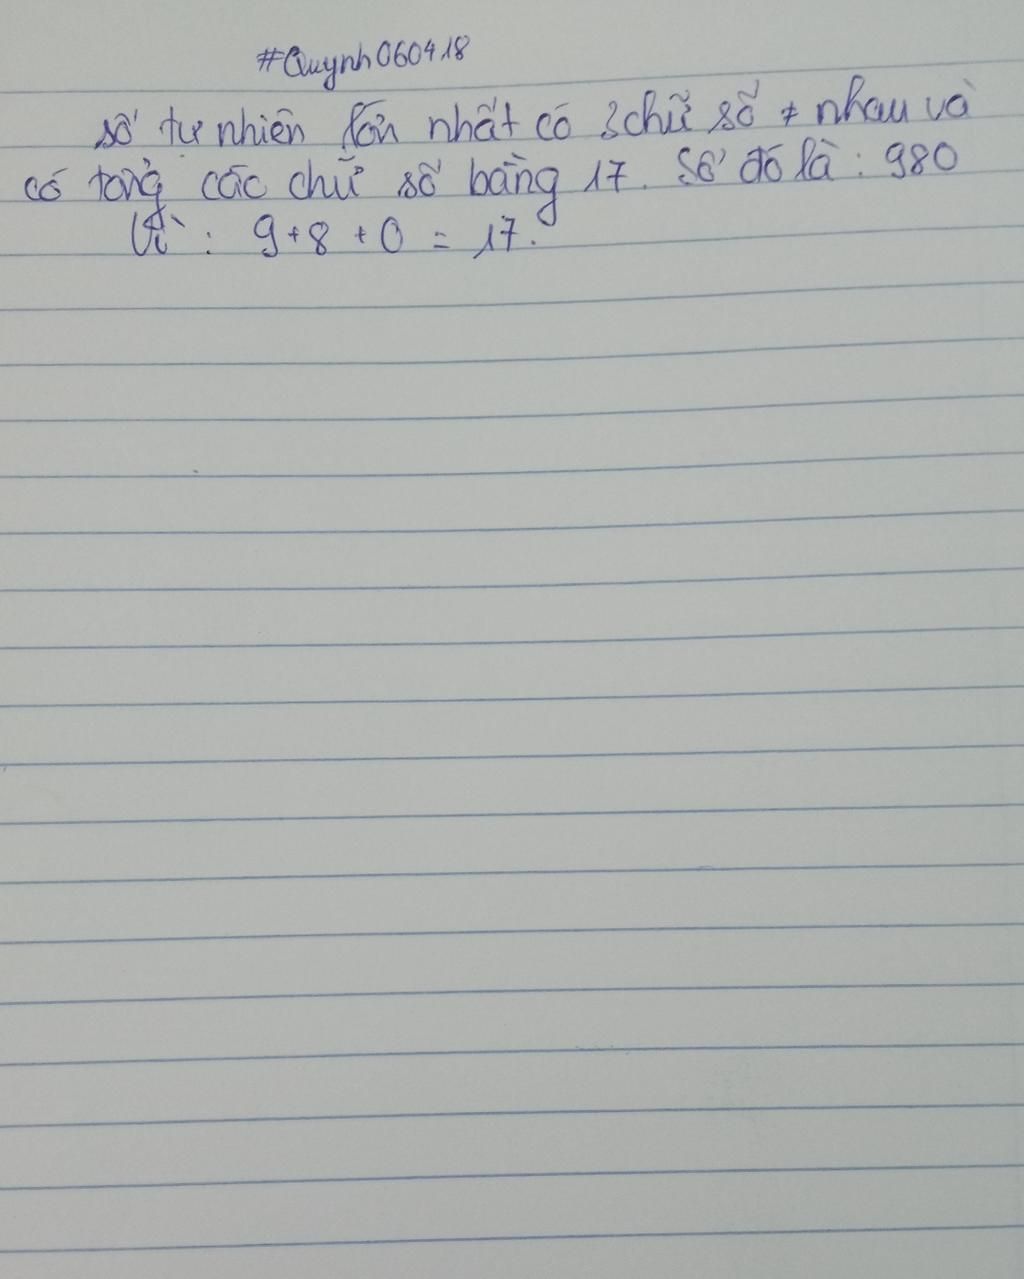 #Quynh060418
số tự nhiên lớn nhất có 3 chữ số ≠ nhau và
có tổng các chữ số bằng 17. Số đó là : 980
Vì : 9 + 8 + 0 = 17.